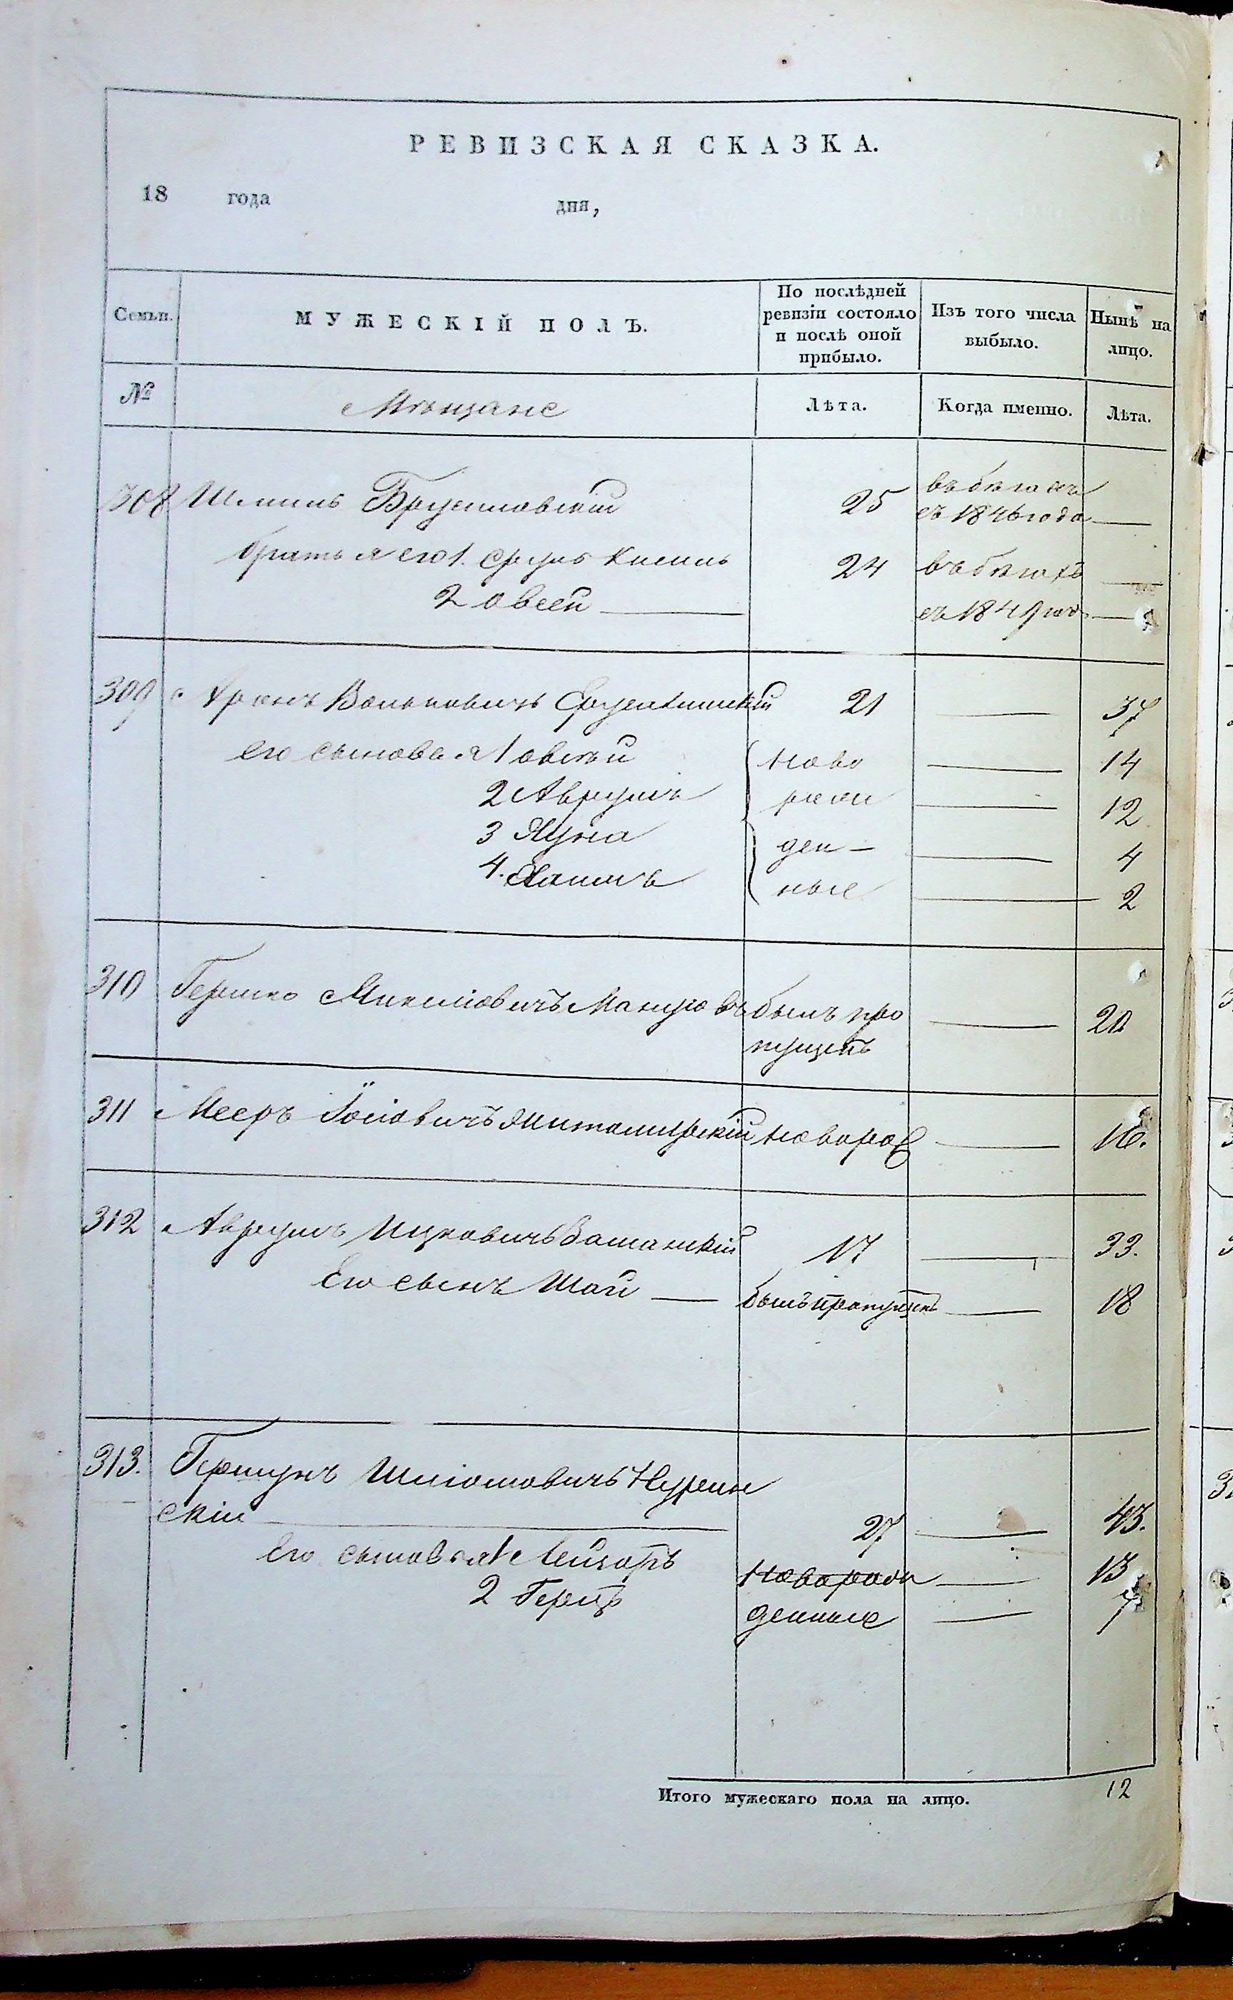 РЕВИЗСКАЯ СКАЗКА.
18 года дня,
Семьи. МУЖЕСКІЙ ПОЛЪ. По послѣдней ревизіи состояло и послѣ оной прибыло. Изъ того числа выбыло. Нынѣ на лицо.
№ Мѣщане Лѣта. Когда именно. Лѣта.
308 Шмиль Бруиловскій 25 въ бѣгахъ
съ 1846 года —
братья его 1. Сруль Кисиль 24 въ бѣгахъ —
2 Овсей — съ 1849 —
309 Аронъ Вольковичъ 21 — 37
Его сыновья 1 Овсѣй ново — 14
2 Аврумъ рож — 12
3 Нуна ден — 4
4. Хаимъ ные — 2
310 Гершко былъ про — 20
пущенъ
311 Мееръ Іосіовичъ Житомирскій новорож — 16.
312 Аврумъ Ицковичъ 17 — 33.
Его сынъ Шая — былъ пропущенъ — 18
313. Гершунъ
скій — 27 — 43.
его сыновья 1 Лейзоръ новорож — 13
2 Герцъ денные — 7
Итого мужескаго пола на лицо. 12